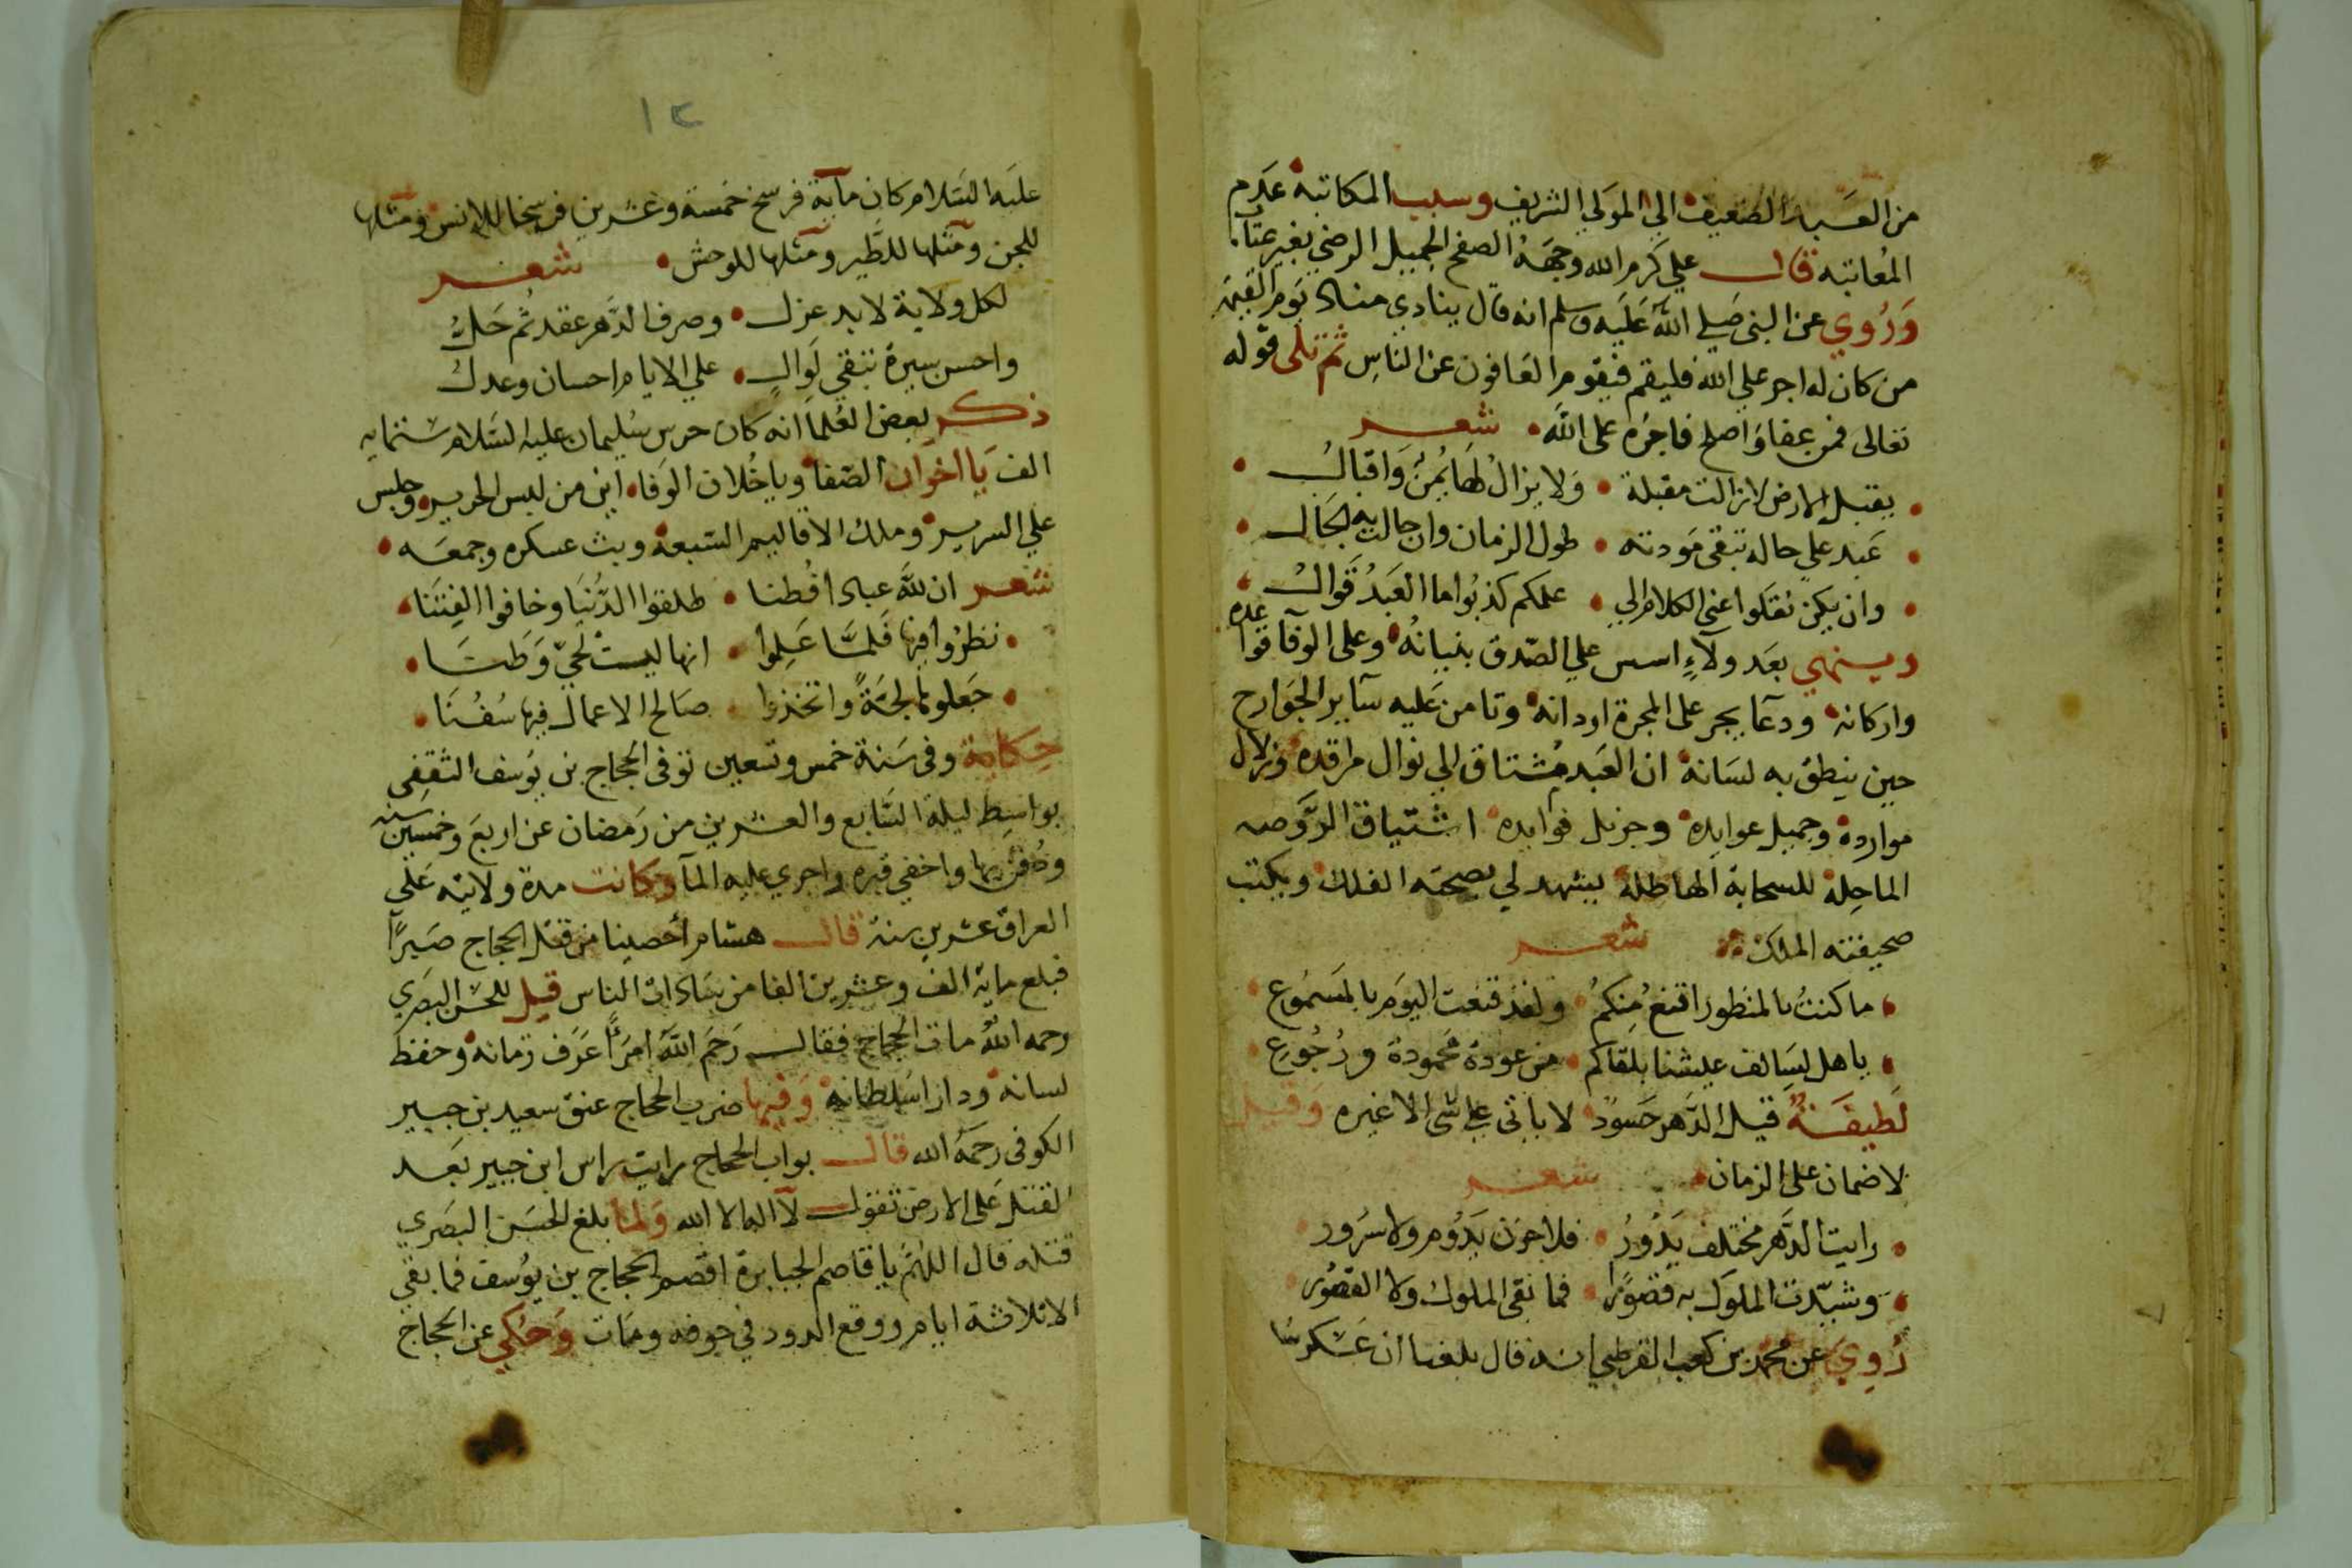 من العبد الضعيف الي المولي الشريف وسبب المكاتبة عدم
المعاتبه قال علي كرم الله وجهه الصفح الجميل الرضي بغير عتاب
وروي عن النبي صلي الله عليه وسلم انه قال ينادي مناد يوم القيمة
من كان له اجر علي الله فليقم فيقوم العافون عن الناس ثم تلى قوله
تعالى فمن عفا واصلح فاجره على الله شعر
يقبل الارض لا زالت مقبلة ولا يزال لها يمن واقبال
عبد علي حاله تبقى مودته طول الزمان وان حالت به الحال
وان يكن نقلوا عني الكلام الي علمكم كذبوا ما العبد قوال
وينهي بعد ولآء اسس علي الصدق بنيانه وعلى الوفآ قواعده
واركانه ودعآ يجر على المجرة اردانه وتامن عليه سآير الجوارح
حين ينطق به لسانه ان العبد مشتاق الي نوال مراقده وزلال
موارده وجميل عوايده وجزيل فوايده اشتياق الروضه
الماحلة للسحابة الهاطلة يشهد لي بصحته الفلك ويكتب
صحيفته الملك شعر
ما كنت بالمنظور اقنع منكم ولقد قنعت اليوم بالمسموع
يا هل لسالف عيشنا بلقاكم من عودة محمودة ورجوع
لطيفة قيل الدهر حسود لا ياتي علي شي الا غيره وقيل
لا ضمان على الزمان شعر
رايت الدهر مختلف يدور فلا حزن يدوم ولا سرور
وشيدت الملوك به قصورا فما بقى الملوك ولا القصور
روي عن محمد بن كعب القرظي انه قال بلغنا ان عسكر
١٢
عليه السلام كان مآية فرسخ خمسة وعشرين فرسخا للانس ومثلها
للجن ومثلها للطير ومثلها للوحش شعر
لكل ولاية لا بد عزل وصرف الدهر عقد ثم حل
واحسن سيرة تبقي لوال علي الايام احسان وعدل
ذكر بعض العلما انه كان حرس سليمان عليه السلام ستمايه
الف يا اخوان الصفا ويا خلان الوفا اين من لبس الحرير وجلس
علي السرير وملك الاقاليم السبعة وبث عسكره وجمعه
شعر ان لله عبادا فطنا طلقوا الدنيا وخافوا الفتنا
نظروا فيها فلما علموا انها ليست لحي وطنا
جعلوها لجة واتخذوا صالح الاعمال فيها سفنا
حكاية وفى سنة خمس وتسعين توفى الحجاج بن يوسف الثقفى
بواسط ليلة السابع والعشرين من رمضان عن اربع وخمسين سنه
ودفن بها واخفي قبره واجري عليه المآ وكانت مدة ولايته علي
العراق عشرين سنة قال هشام أحصينا من قتل الحجاج صبرا
فبلغ ماية الف وعشرين الفا من سادات الناس قيل للحسن البصري
رحمه الله مات الحجاج فقال رحم الله امرأ عرف زمانه وحفظ
لسانه ودارا سلطانه وفيها ضرب الحجاج عنق سعيد بن جبير
الكوفى رحمه الله قال بواب الحجاج رايت راس ابن جبير بعد
القتل على الارض تقول لآ اله الا الله ولما بلغ الحسن البصري
قتله قال اللهم يا قاصم الجبابرة اقصم الحجاج بن يوسف فما بقي
الا ثلاثة ايام ووقع الدود في جوفه ومات وحكي عن الحجاج